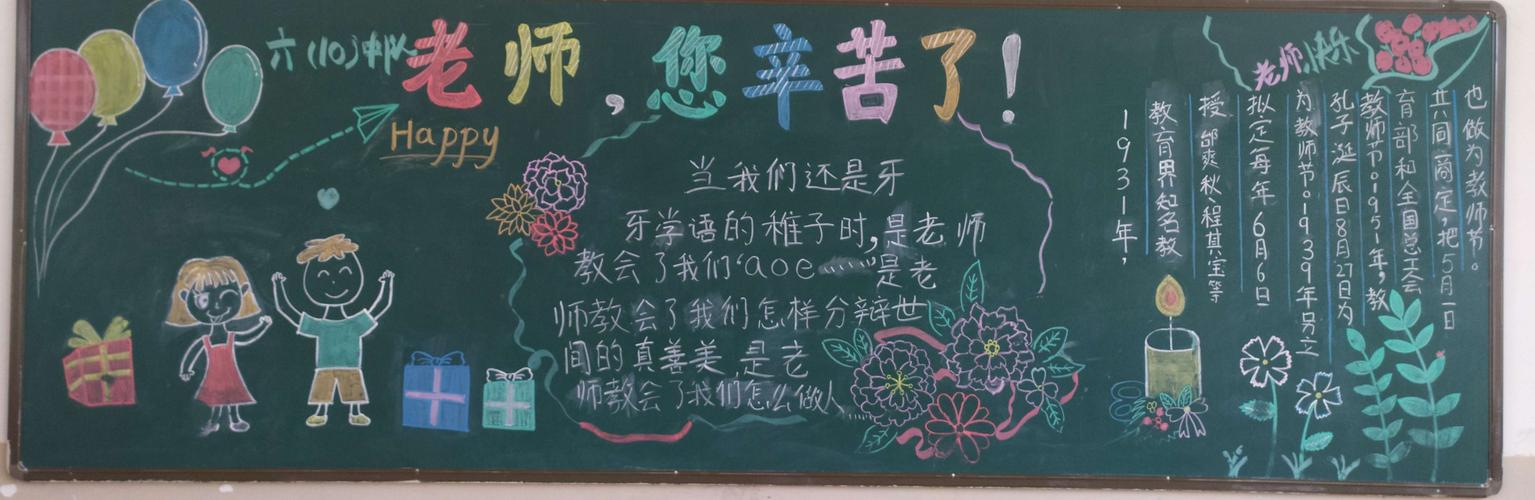 六(10)中队
老师,您辛苦了!
Happy
当我们还是牙
牙学语的稚子时,是老师
教会了我们“aoe……”是老
师教会了我们怎样分辩世
间的真善美,是老
师教会了我们怎么做人……
老师,快乐
1931年,
教育界知名教
授邰爽秋、程其宝等
拟定每年6月6日
为教师节。1939年另之
孔子诞辰日8月27日为
教师节。1951年,教
育部和全国总工会
共同商定把5月一日
也做为教师节。